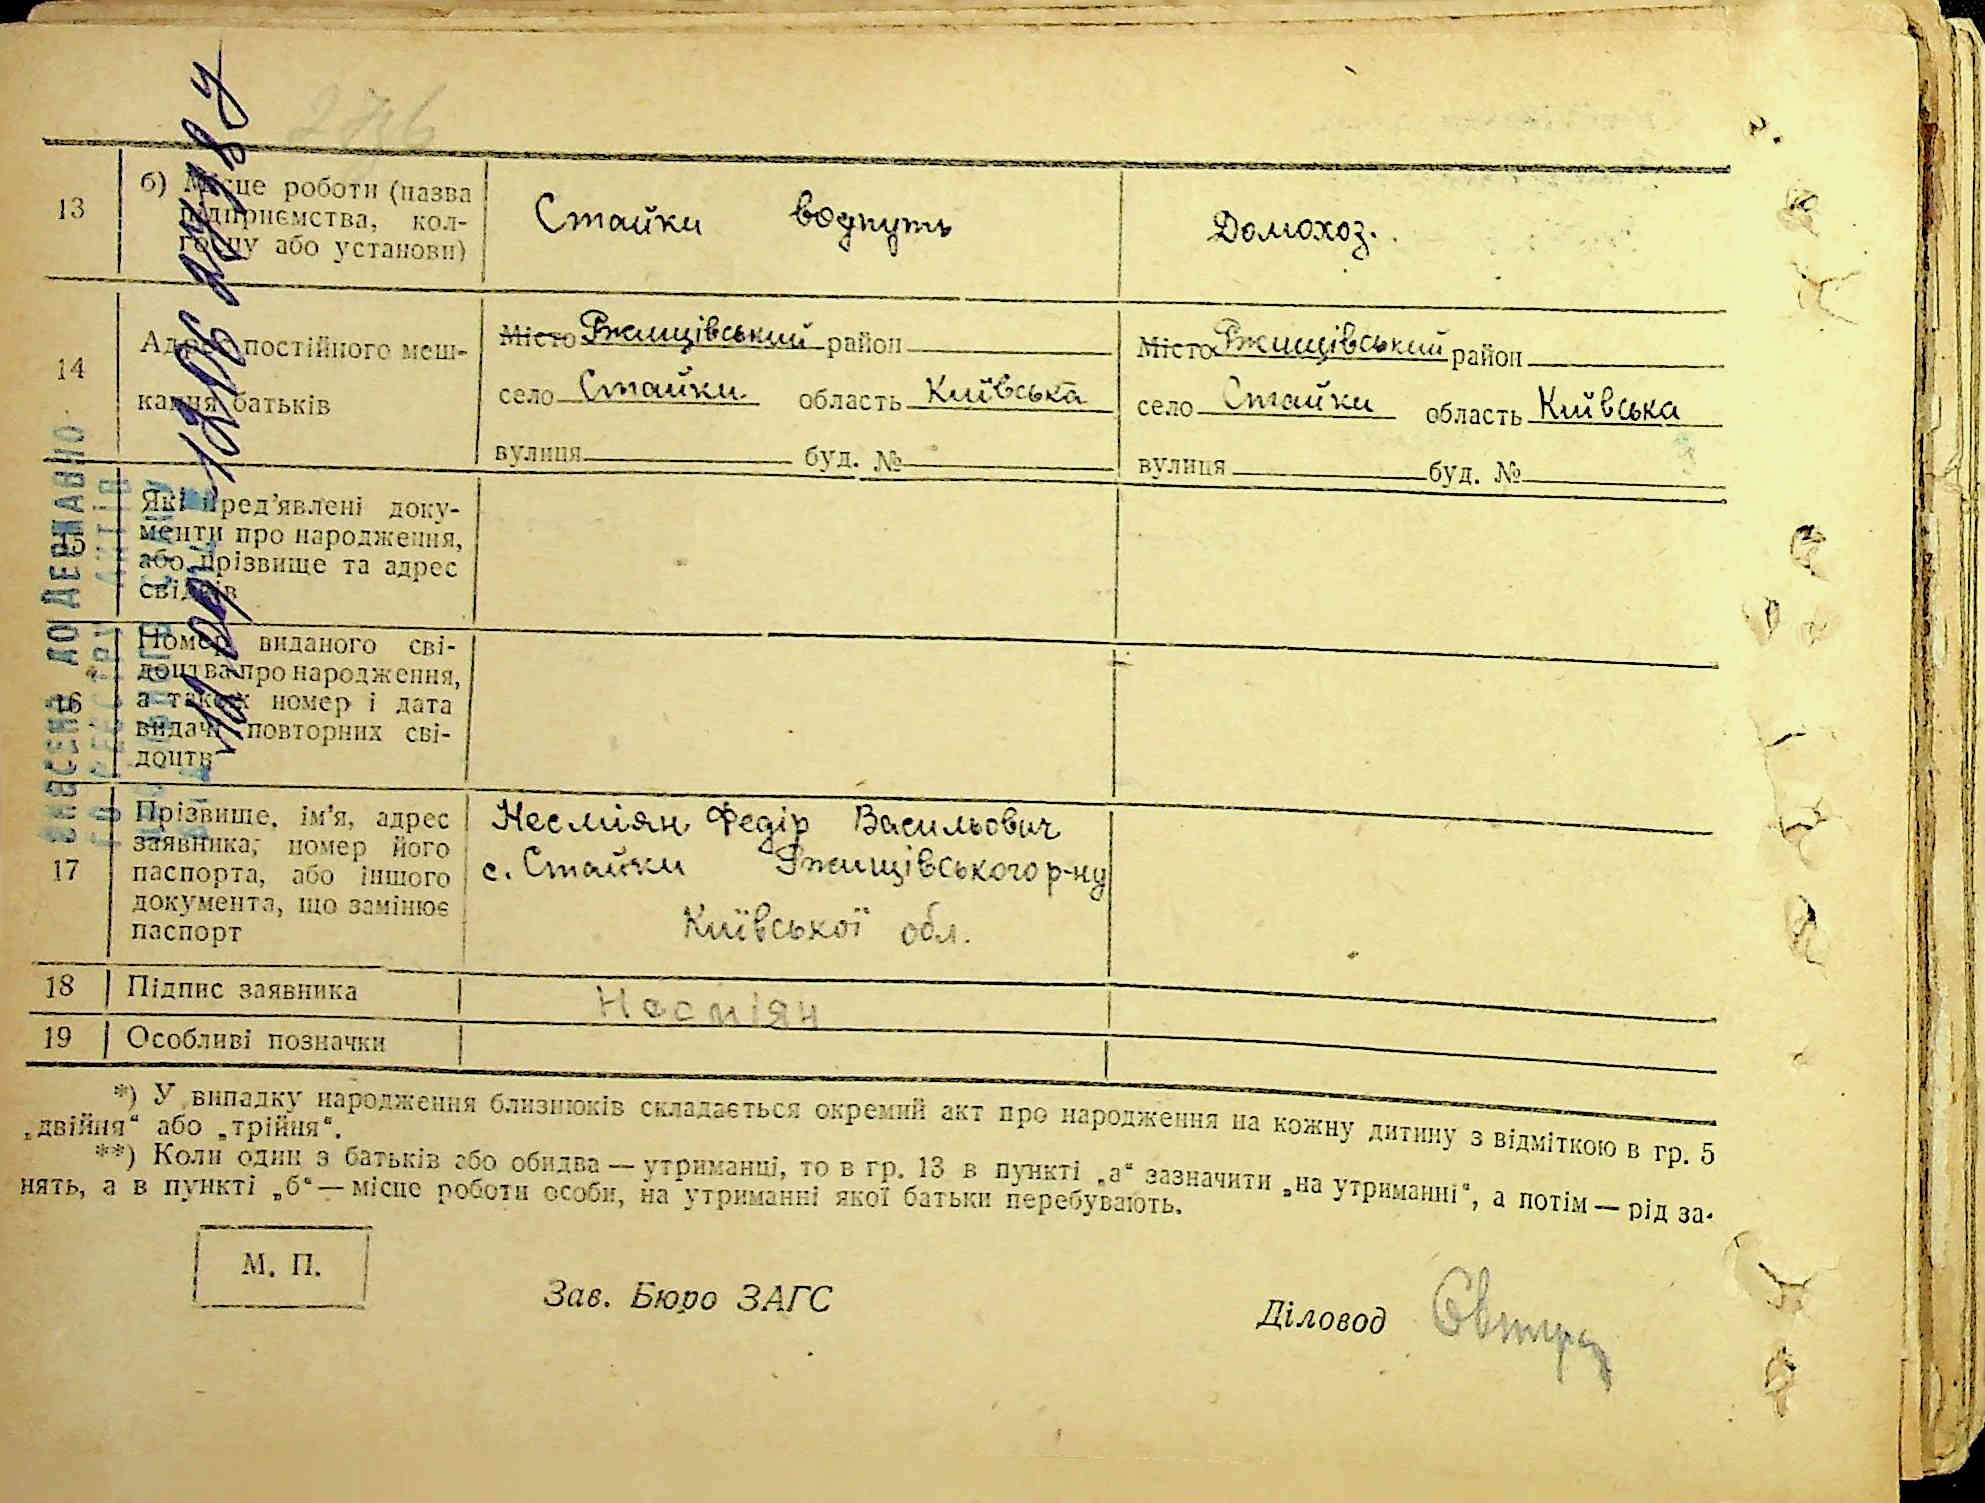 2746
13
б) Місце роботи (назва
підприємства, кол-
госпу або установи)
Стайки водпуть
Домохоз.
14
Адрес постійного меш-
кання батьків
Місто Ржищівський район
село Стайки область Київська
вулиця буд. №
Місто Ржищівський район
село Стайки область Київська
вулиця буд. №
15
Які пред'явлені доку-
менти про народження,
або прізвище та адрес
свідків
16
Номер виданого сві-
доцтва про народження,
а також номер і дата
видачі повторних сві-
доцтв
17
Прізвище, ім'я, адрес
заявника, номер його
паспорта, або іншого
документа, що замінює
паспорт
Несміян Федір Васильович
с. Стайки Ржищівського р-ну
Київської обл.
18
Підпис заявника
Несміян
19
Особливі позначки
*) У випадку народження близнюків складається окремий акт про народження на кожну дитину з відміткою в гр. 5
„двійня“ або „трійня“.
**) Коли один з батьків або обидва — утриманці, то в гр. 13 в пункті „а“ зазначити „на утриманні“, а потім — рід за-
нять, а в пункті „б“ — місце роботи особи, на утриманні якої батьки перебувають.
М. П.
Зав. Бюро ЗАГС
Діловод
ВНЕСЕНО ДО ДЕРЖАВНОГО